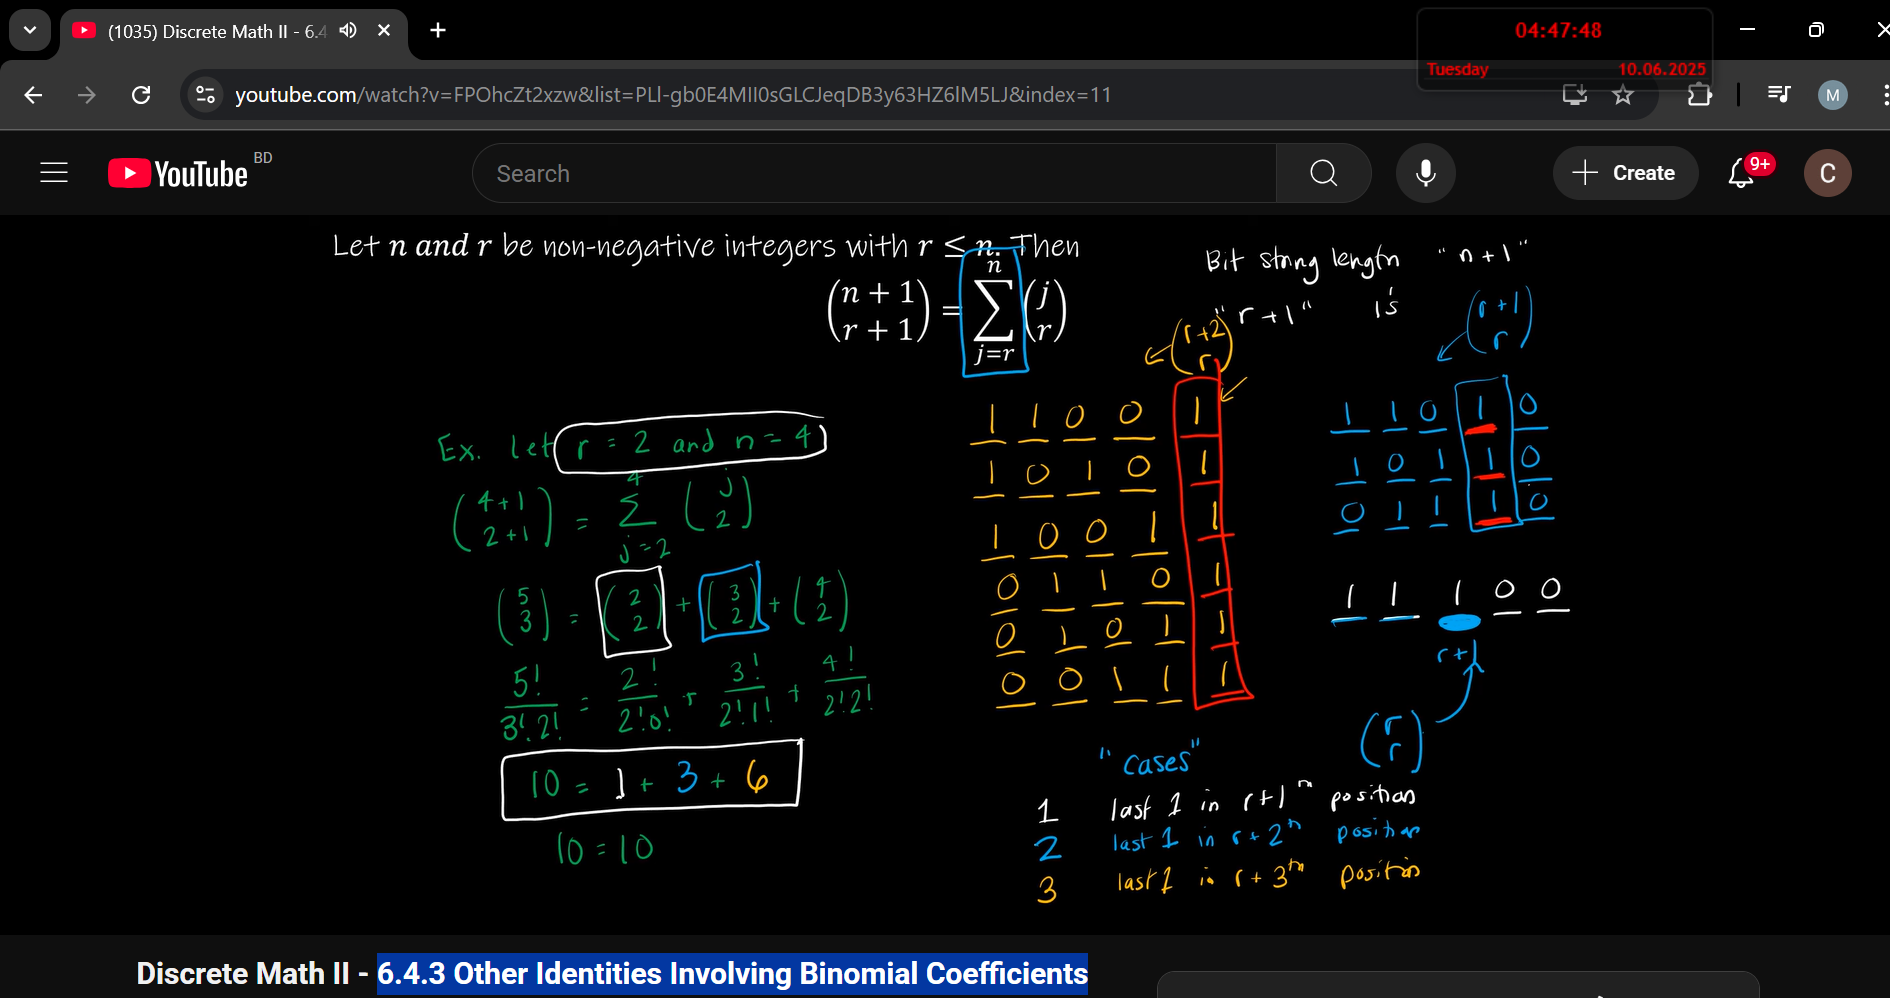 (1035) Discrete Math II - 6.4
04:47:48
Tuesday 10.06.2025
youtube.com/watch?v=FPOhcZt2xzw&list=PLl-gb0E4MII0sGLCJeqDB3y63HZ6lM5LJ&index=11
M
YouTube BD
Search
Create
9+
C
Let n and r be non-negative integers with r ≤ n. Then
(n + 1 / r + 1) = ∑_{j=r}^{n} (j / r)
Bit string length "n+1"
"r+1" 1's
(r+2 / r)
(r+1 / r)
Ex. Let r = 2 and n = 4
(4+1 / 2+1) = ∑_{j=2}^{4} (j / 2)
(5 / 3) = (2 / 2) + (3 / 2) + (4 / 2)
5!/3!.2! = 2!/2!0! + 3!/2!1! + 4!/2!2!
10 = 1 + 3 + 6
10 = 10
1 1 0 0 1
1 0 1 0 1
1 0 0 1 1
0 1 1 0 1
0 1 0 1 1
0 0 1 1 1
1 1 0 1 0
1 0 1 1 0
0 1 1 1 0
1 1 1 0 0
r+1
(r / r)
"cases"
1 last 1 in r+1th position
2 last 1 in r+2th position
3 last 1 in r+3th position
Discrete Math II - 6.4.3 Other Identities Involving Binomial Coefficients